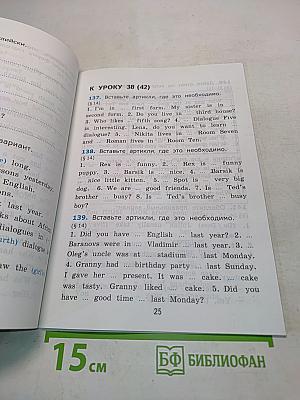 пийски.
вариант.
long.
lessons yesterday.
English.
last year.
books about Africa
dialogues in
dialogue
saw the
К УРОКУ 38 (42)
137. Вставьте артикли, где это необходимо.
(§ 14)
1. I'm in ... first form. My sister is in ...
second form. 2. Do you live in ... third house?
3. Who likes ... fifth song? 4. ... Dialogue Five
is interesting. Lena, do you want to learn ...
dialogue? 5. ... Nikitins live in ... Room Seven
and ... Roman lives in ... Room Ten.
138. Вставьте артикли, где это необходимо.
(§ 14)
1. ... Rex is ... funny. 2. ... Rex is ... funny
puppy. 3. ... Barsik is ... nice. 4. ... Barsik is
... nice little kitten. 5. ... Spot is ... very big
dog. 6. We are ... good friends. 7. Is ... Ted's
brother ... busy? 8. Is ... Ted's brother ... busy
boy?
139. Вставьте артикли, где это необходимо.
(§ 14)
1. Did you have ... English ... last year? 2. ...
Baranovs were in ... Vladimir ... last year. 3. ...
Oleg's uncle was at ... stadium ... last Monday.
4. Granny had ... birthday party ... last Sunday.
I gave her ... present. It was ... cake. ...
cake was tasty. Granny liked ... cake. 5. Did you
have ... good time ... last Monday?
25
15 см
БФ БИБЛИОФАН